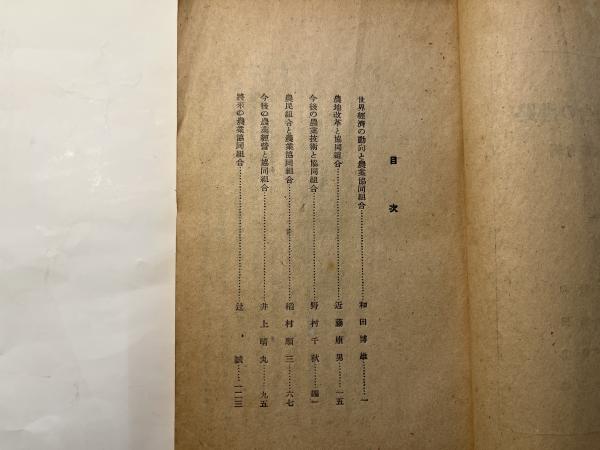 目次
世界經濟の動向と農業協同組合……………和田博雄……一
農地改革と協同組合……………近藤康男……一五
今後の農業技術と協同組合……………野村千秋……
農民組合と農業協同組合……………稻村順三……六七
今後の農業經營と協同組合……………井上晴丸……九五
將來の農業協同組合……………辻誠……一二三